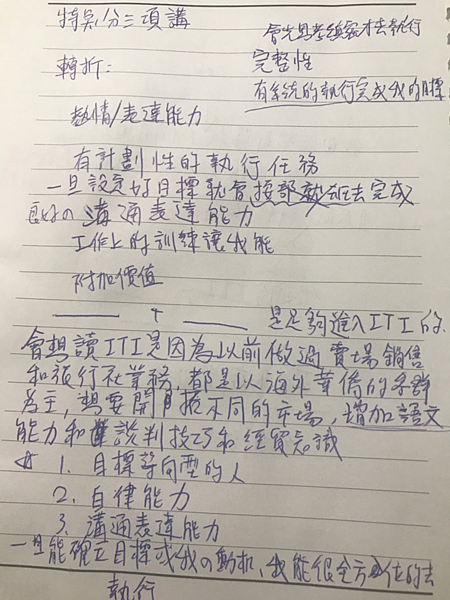 特質分三項講
會先思考細密才去執行
轉折: 完整性
有系統的執行完成我的目標
熱情/表達能力
有計劃性的執行任務
一旦設定好目標就會按部就班去完成
良好の溝通表達能力
工作上的訓練讓我能
附加價值
+ 是足夠進入ITI的
會想讀ITI是因為以前做過賣場銷售
和旅行社業務,都是以海外華僑的客群
為主,想要開發不同的市場,增加語文
能力和談判技巧和經貿知識
1. 目標導向型的人
2. 自律能力
3. 溝通表達能力
一旦能確立目標或我の動机、我能很全方位的去
執行